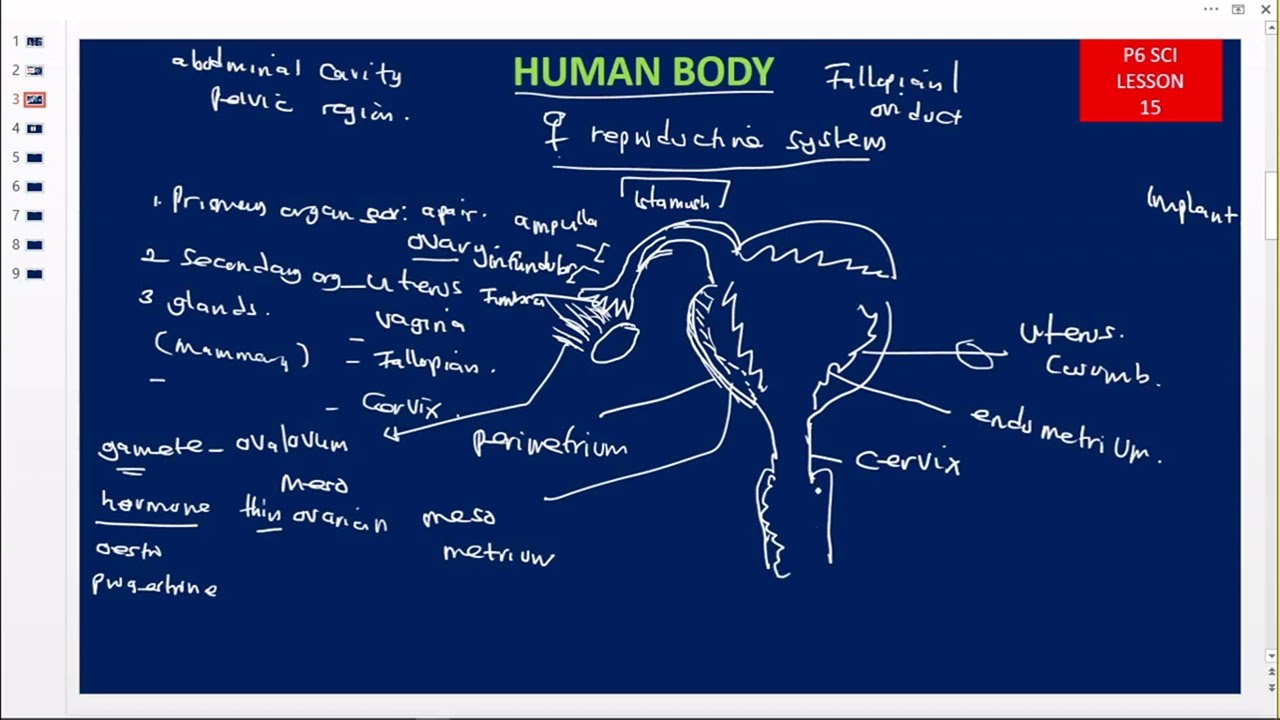 1
2
3
4
5
6
7
8
9
HUMAN BODY
P6 SCI
LESSON
15
abdominal cavity
pelvic region.
Fallopian /
oviduct
♀ reproductive system
Implant
1. Primary organ sex: a pair.
ovary
2 Secondary org_uterus
vagina
- Fallopian.
- Cervix.
3 glands.
(Mammary)
-
ampulla
infundubr
Fimbria
uterus.
endometrium.
cervix
perimetrium
meso
metrium
gamete - ova/ovum
meso
hormone thin ovarian
oestro